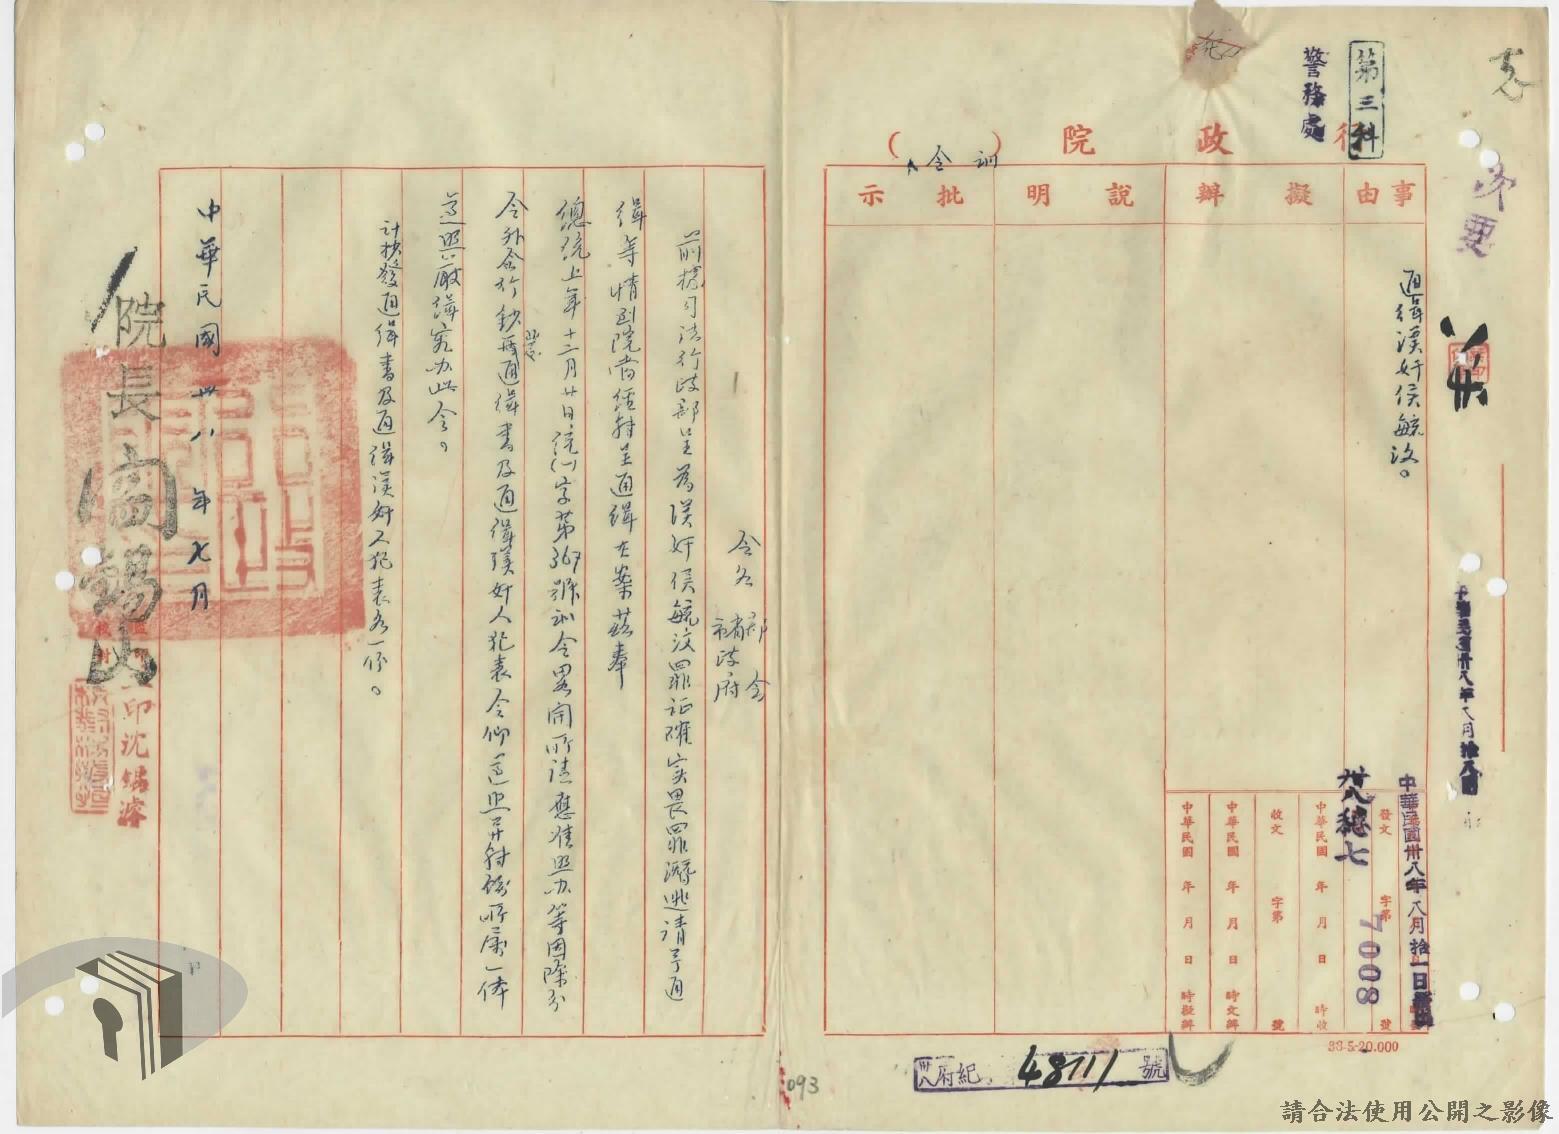 第三科
警務處
行政院(訓令)
事由
擬辦
說明
批示
通緝漢奸侯毓汶。
中華民國卅八年八月拾一日
卅八總七
7008
發文 字第 號
中華民國 年 月 日 時收
收文 字第 號
中華民國 年 月 日 時文辦
中華民國 年 月 日 時擬辦
38-5-20.000
卅八府紀 48111 號
093
令各部會
省市政府
前據司法行政部呈為漢奸侯毓汶罪証確实畏罪潛逃請予通
緝等情到院當經轉呈通緝在案茲奉
總統上年十二月廿日統(一)字第367號訓令畧開所請應准照办等因除分
令外合行鈔發通緝書及通緝漢奸人犯表令仰遵照并轉飭所屬一体
遵照嚴緝究办此令。
計抄發通緝書及通緝漢奸人犯表各一份。
中華民國卅八年 月
院長閻錫山
請合法使用公開之影像